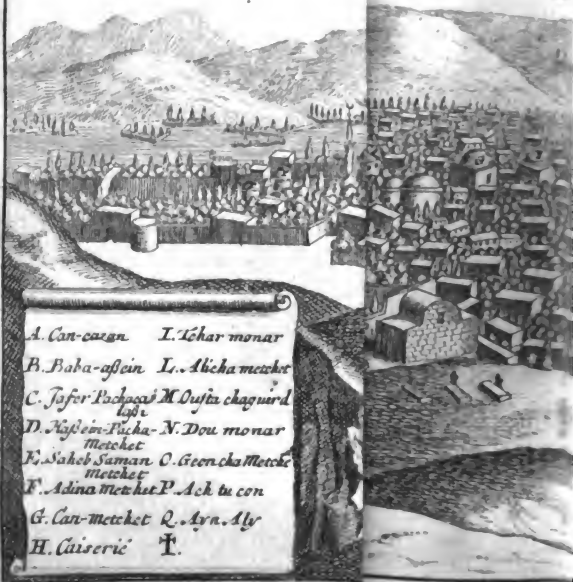 A. Can-cazan
B. Baba-aſsein
C. Jafer-Pachacaſ
laſi
D. Haſsein-Pacha-
Metchet
E. Saheb Saman
Metchet
F. Adina Metchet
G. Can-metchet
H. Caiserié
I. Tchar monar
L. Alicha metchet
M. Ousta chaguird
N. Dou monar
O. Geoncha Metche
P. Ach tu con
Q. Ayn Aly
✝.